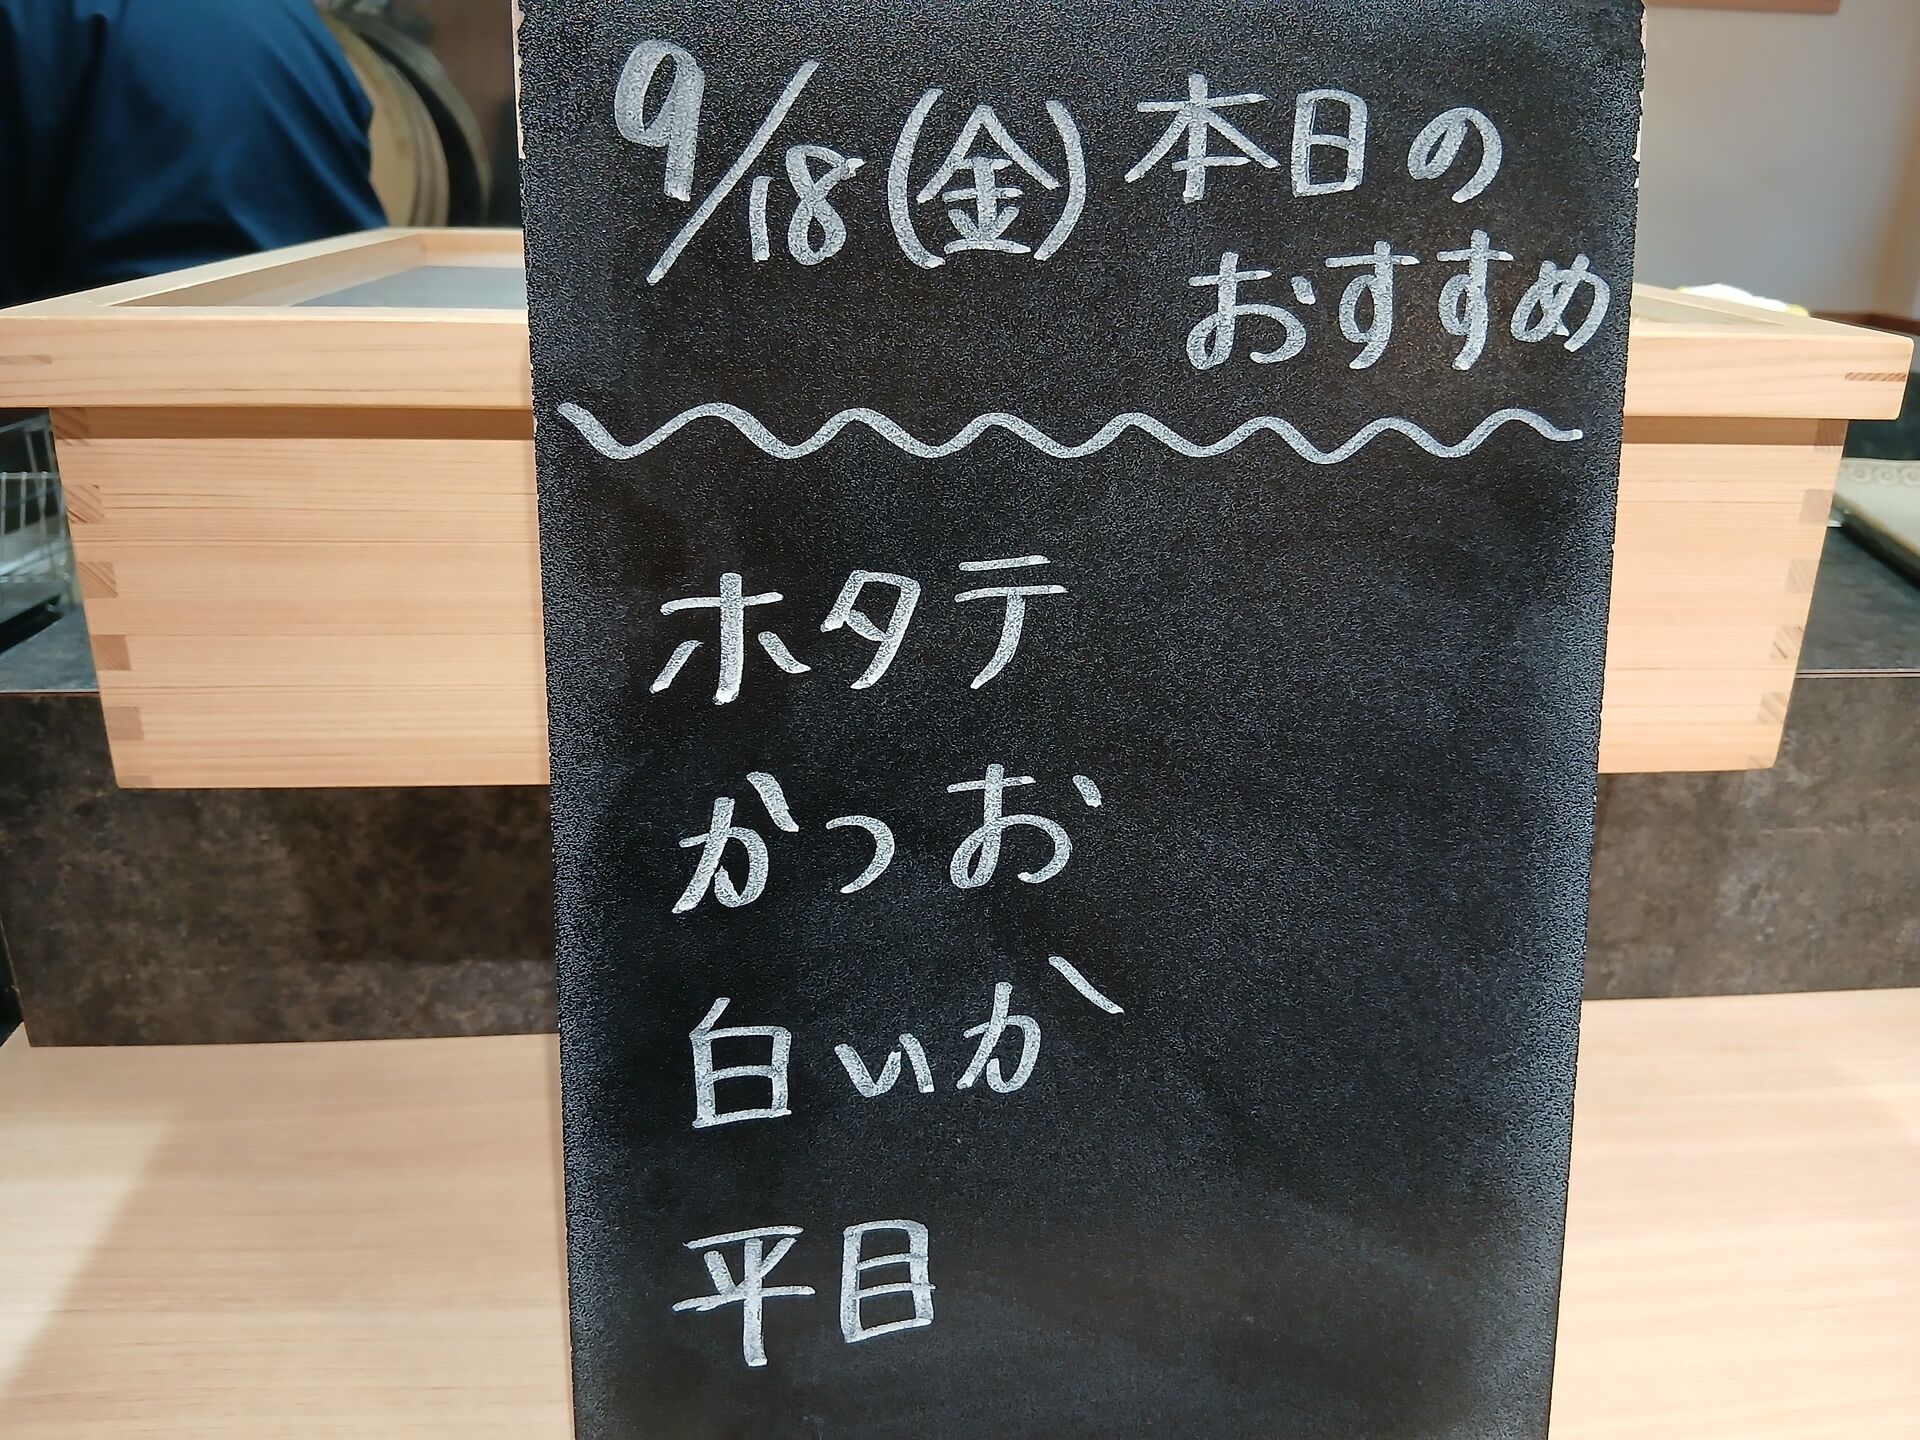 9/18(金)本日の
おすすめ
ホタテ
かつお
白いか
平目